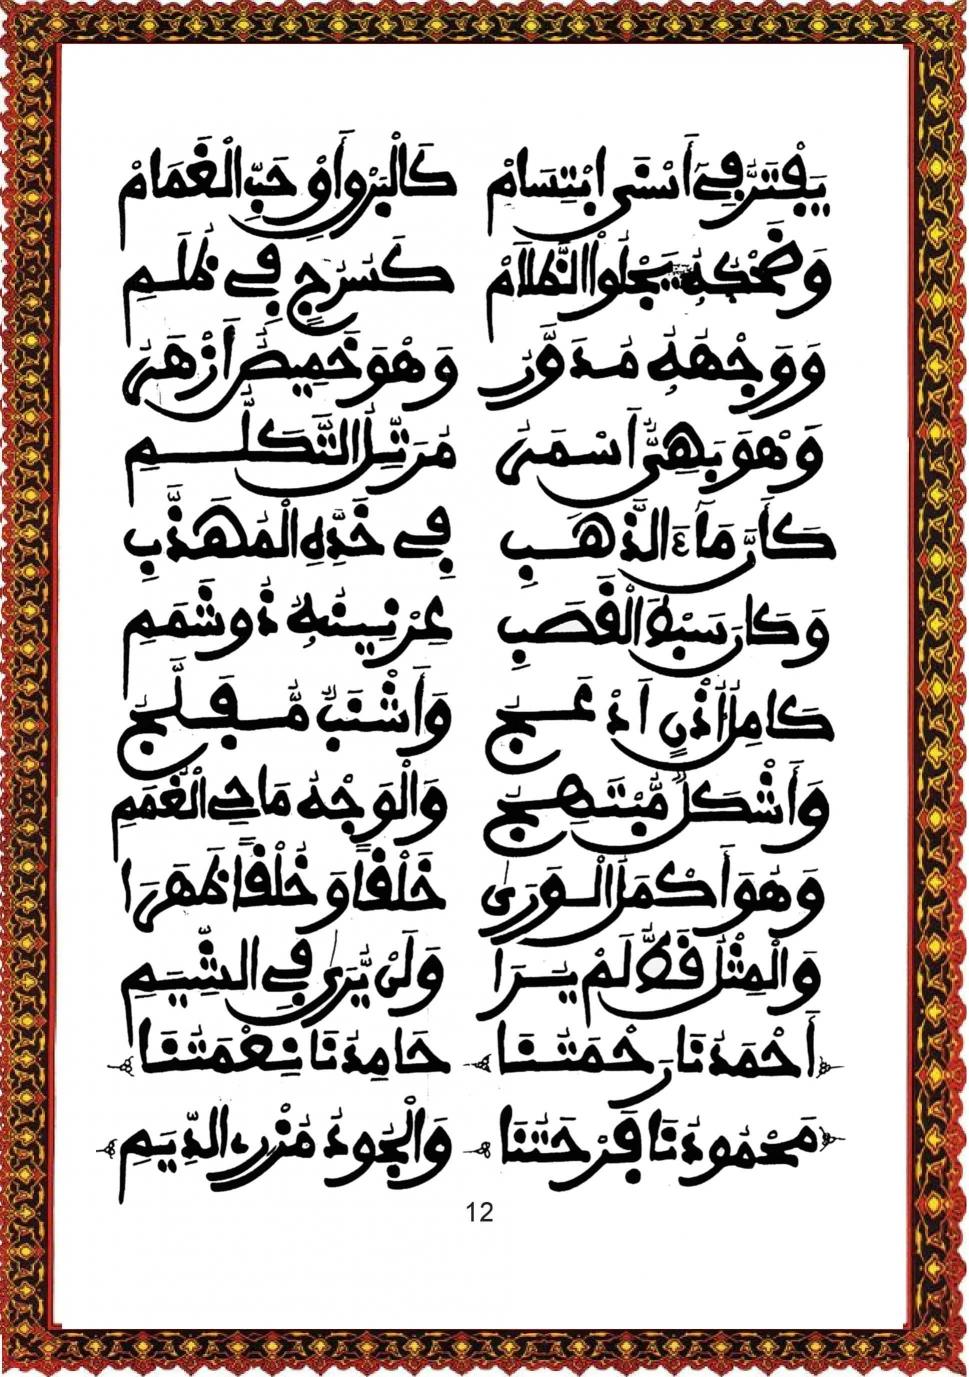 يَفْتَرُّ فِي أَسْنَى ابْتِسَامْ كَالْبَرْقِ أَوْ حَبِّ الْغَمَامْ
وَضَحْكُهُ يَجْلُوا الظَّلَامْ كَسُرُجٍ فِي ظُلَمِ
وَوَجْهُهُ مُدَوَّرُ وَهْوَ خَمِيصٌ أَزْهَرُ
وَهْوَ بَهِيٌّ أَسْمَرُ مُرَتِّلُ التَّكَلُّمِ
كَأَنَّ مَاءَ الذَّهَبِ فِي خَدِّهِ الْمُهَذَّبِ
وَكَانَ سَبْطَ الْقَصَبِ عِرْنِينُهُ ذُو شَمَمِ
كَامِلُ أُذْنٍ أَدْعَجُ وَأَشْنَبٌ مُّفَلَّجُ
وَأَشْكَلٌ مُّبْتَهِجُ وَالْوَجْهُ مَاحِي الْغُمَمِ
وَهُوَ أَكْمَلُ الْوَرَى خَلْقًا وَخُلْقًا ظَهَرَا
وَالْمِثْلُ قَلَّا لَمْ يُرَا وَلَنْ يُّرَى فِي الشِّيَمِ
أَحْمَدُنَا رَحْمَتُنَا حَامِدُنَا نِعْمَتُنَا
مَحْمُودُنَا فَرْحَتُنَا وَالْجُودُ مُزْرِي الدِّيَمِ
12